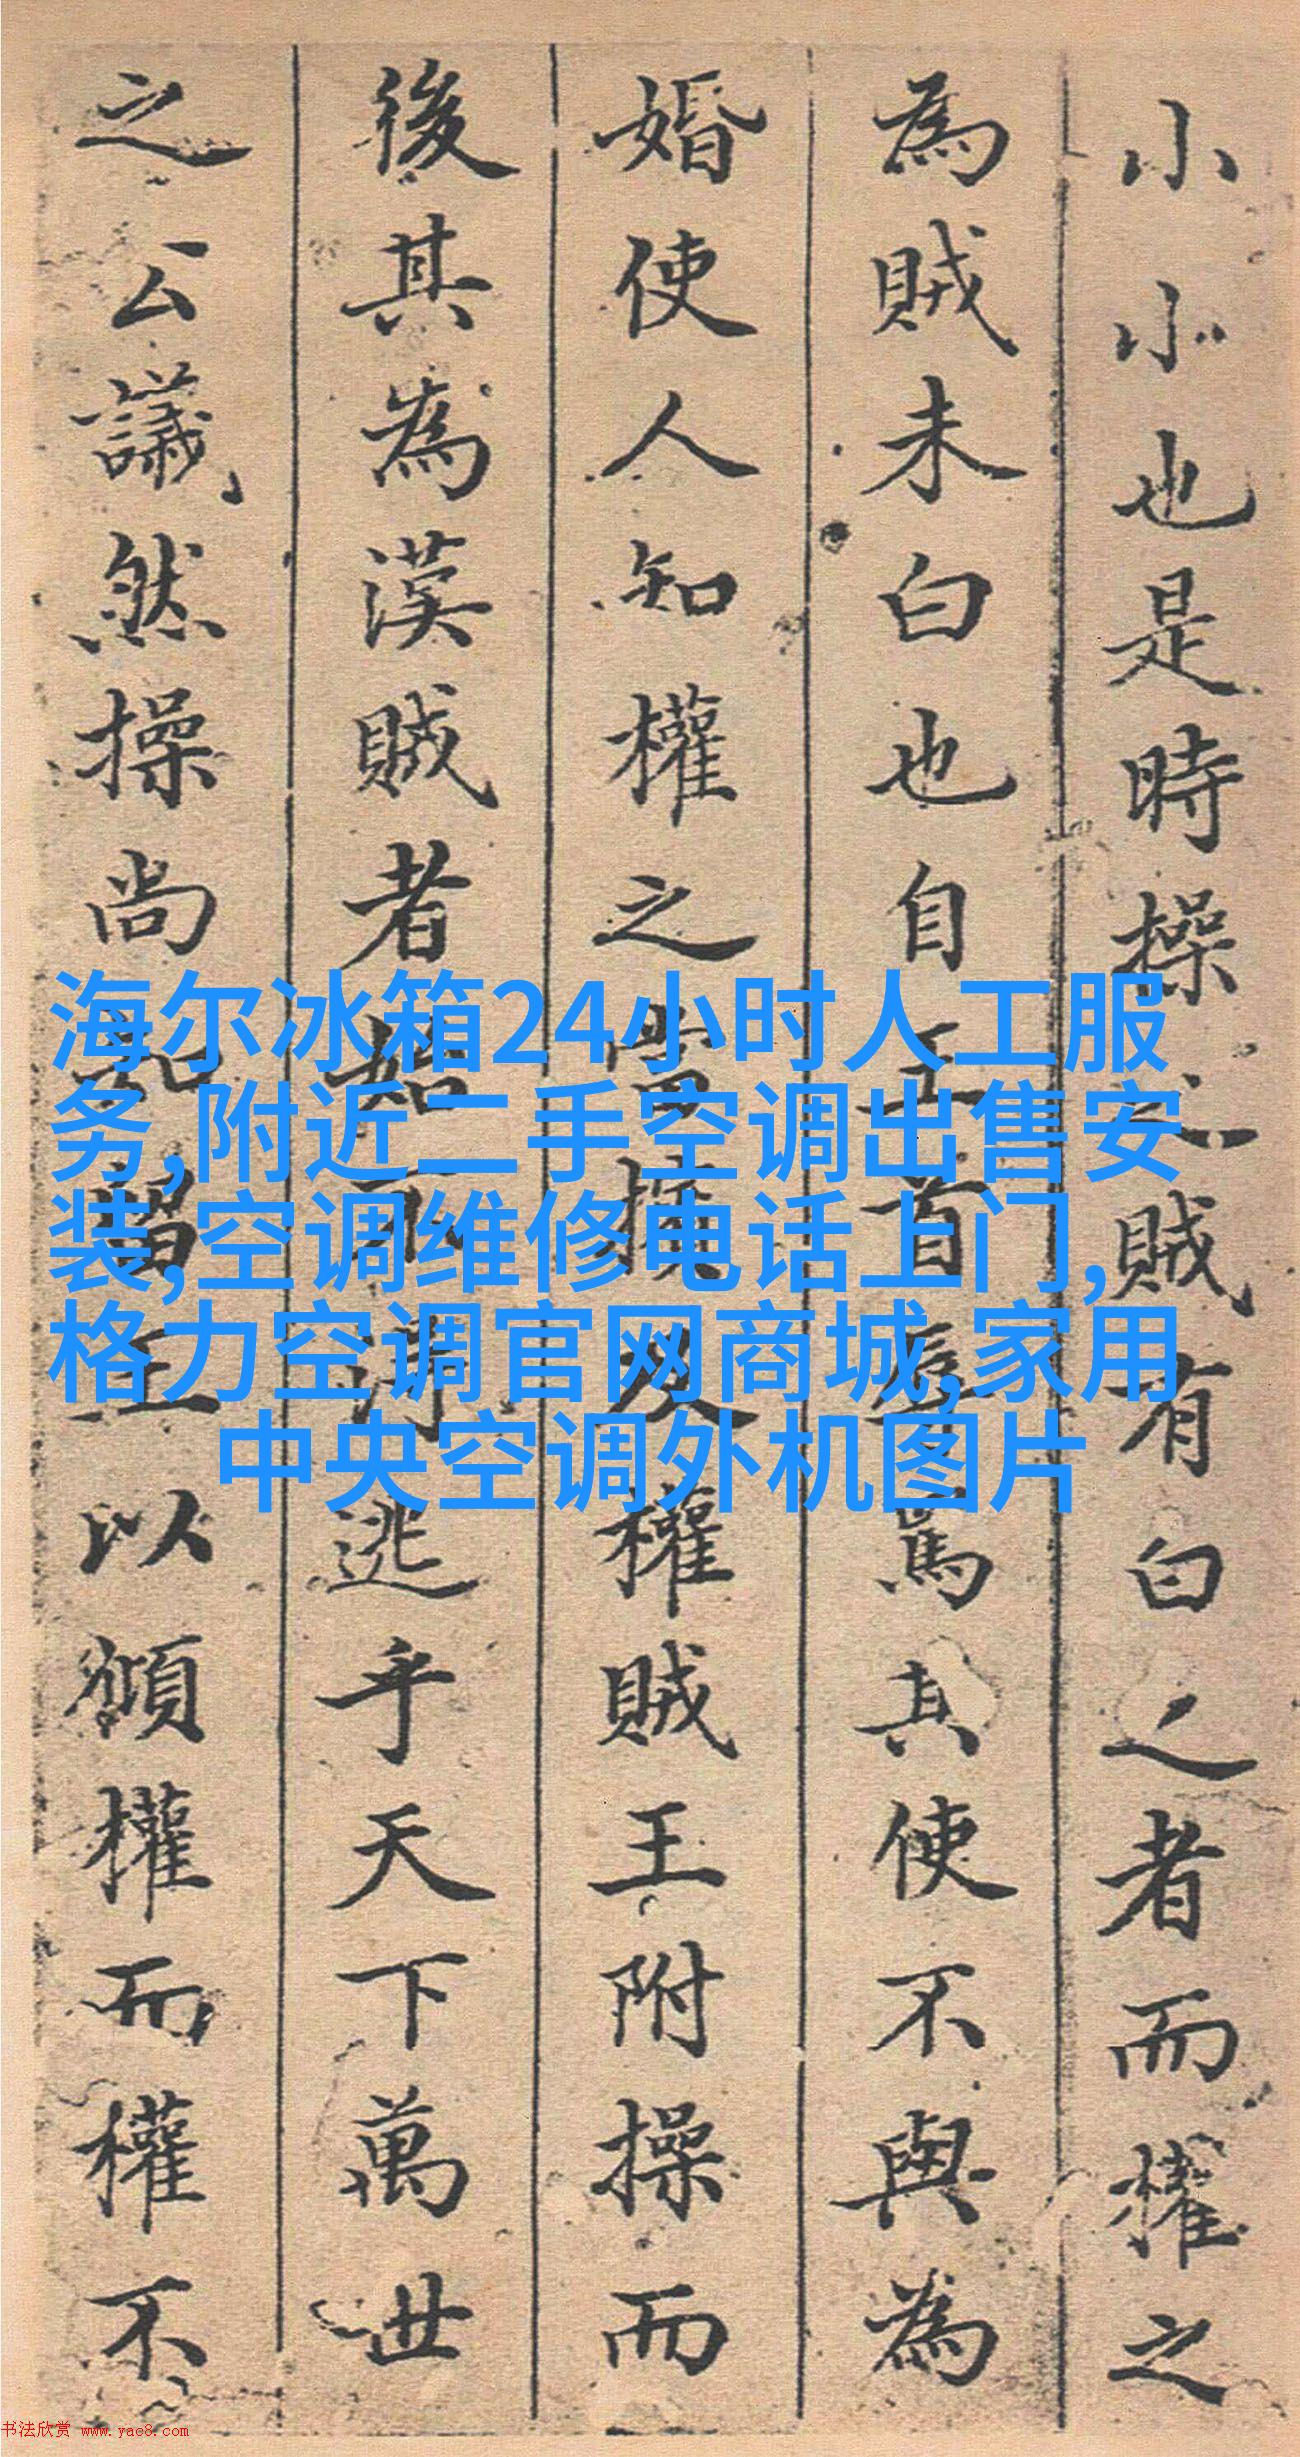 小小也是時操之賊有白之者而權之
為賊未白也自首其使不與為
婚使人知權之權賊王附操而
後其為漢賊者始不逃乎天下萬世
之公議然操尚以權而權不
海尔冰箱24小时人工服
务,附近二手空调出售安
装,空调维修电话上门,
格力空调官网商城,家用
中央空调外机图片
书法欣赏 www.yac8.com